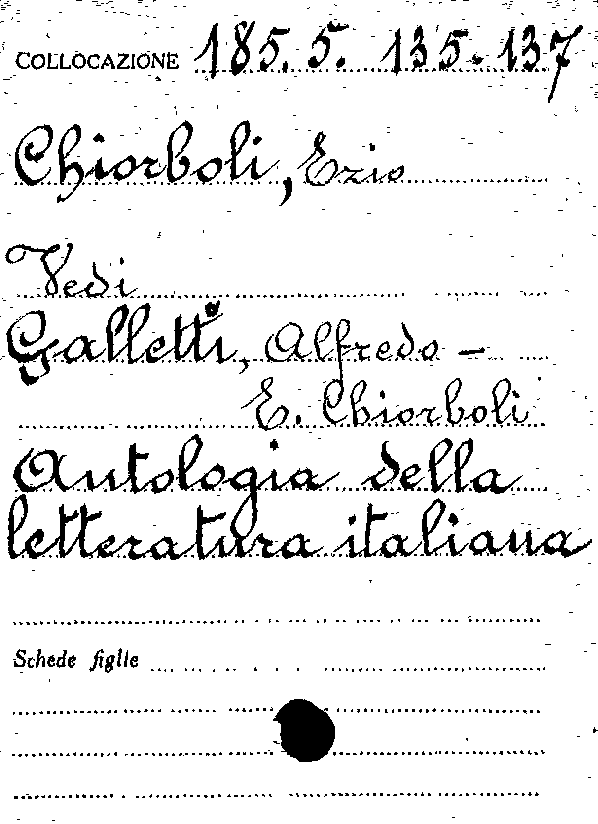 COLLOCAZIONE 185. 5. 135-137
Chiorboli, Ezio
Vedi
Galletti, Alfredo -
E. Chiorboli
Antologia della
letteratura italiana
Schede figlie